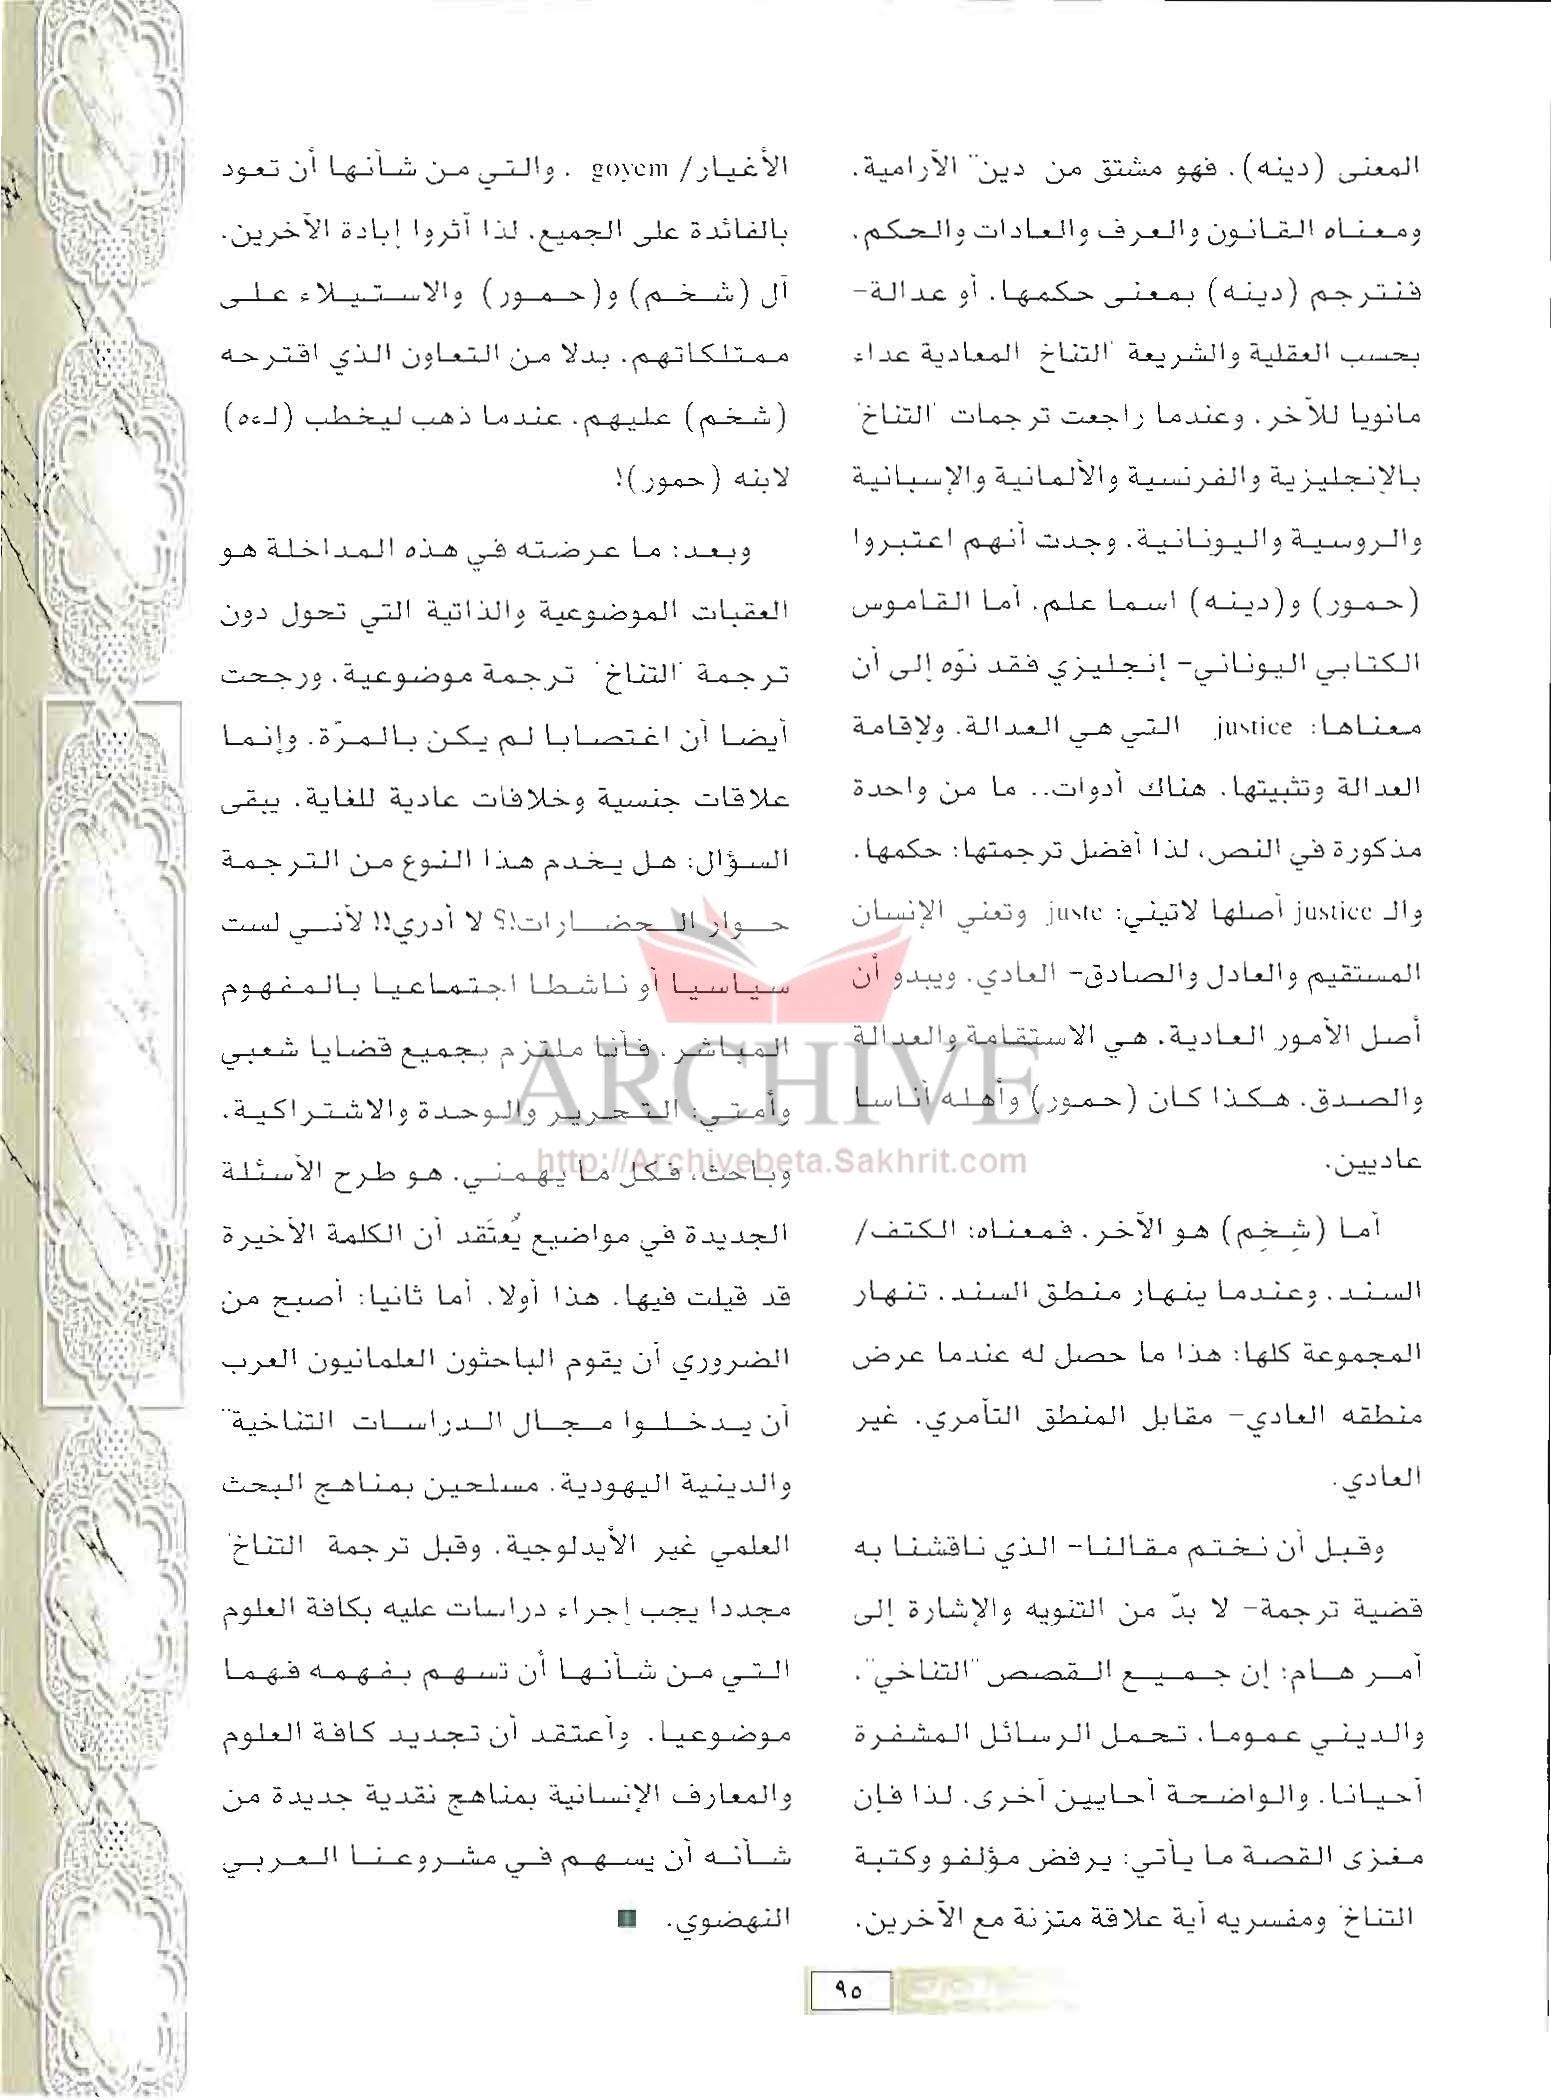 المعنى (دينه). فهو مشتق من دين" الآرامية.
ومعناه القانون والعرف والعادات والحكم.
فنترجم (دينه) بمعنى حكمها. أو عدالة-
بحسب العقلية والشريعة "التناخ" المعادية عداء
مانويا للآخر. وعندما راجعت ترجمات "التناخ"
بالإنجليزية والفرنسية والألمانية والإسبانية
والروسية واليونانية. وجدت أنهم اعتبروا
(حمور) و(دينه) اسما علم. أما القاموس
الكتابي اليوناني- إنجليزي فقد نوّه إلى أن
معناها: justice التي هي العدالة. ولإقامة
العدالة وتثبيتها. هناك أدوات.. ما من واحدة
مذكورة في النص، لذا أفضل ترجمتها: حكمها.
والـ justice أصلها لاتيني: juste وتعني الإنسان
المستقيم والعادل والصادق- العادي. ويبدو أن
أصل الأمور العادية. هي الاستقامة والعدالة
والصدق. هكذا كان (حمور) وأهله أناسا
عاديين.
أما (شِخِم) هو الآخر. فمعناه: الكتف/
السند. وعندما ينهار منطق السند. تنهار
المجموعة كلها: هذا ما حصل له عندما عرض
منطقه العادي- مقابل المنطق التآمري. غير
العادي.
وقبل أن نختم مقالنا- الذي ناقشنا به
قضية ترجمة- لا بدّ من التنويه والإشارة إلى
أمر هام: إن جميع القصص "التناخي".
والديني عموما. تحمل الرسائل المشفرة
أحيانا. والواضحة أحايين أخرى. لذا فإن
مغزى القصة ما يأتي: يرفض مؤلفو وكتبة
التناخ" ومفسريه أية علاقة متزنة مع الآخرين.
الأغيار/ goyem . والتي من شأنها أن تعود
بالفائدة على الجميع. لذا آثروا إبادة الآخرين.
آل (شخم) و(حمور) والاستيلاء على
ممتلكاتهم. بدلا من التعاون الذي اقترحه
(شخم) عليهم. عندما ذهب ليخطب (لءه)
لابنه (حمور)!
وبعد: ما عرضته في هذه المداخلة هو
العقبات الموضوعية والذاتية التي تحول دون
ترجمة "التناخ" ترجمة موضوعية. ورجحت
أيضا أن اغتصابا لم يكن بالمرّة. وإنما
علاقات جنسية وخلافات عادية للغاية. يبقى
السؤال: هل يخدم هذا النوع من الترجمة
حوار الحضارات!؟ لا أدري!! لأني لست
سياسيا أو ناشطا اجتماعيا بالمفهوم
المباشر. فأنا ملتزم بجميع قضايا شعبي
وأمتي: التحرير والوحدة والاشتراكية.
وباحث، فكل ما يهمني. هو طرح الأسئلة
الجديدة في مواضيع يُعتَقد أن الكلمة الأخيرة
قد قيلت فيها. هذا أولا. أما ثانيا: أصبح من
الضروري أن يقوم الباحثون العلمانيون العرب
أن يدخلوا مجال الدراسات التناخية"
والدينية اليهودية. مسلحين بمناهج البحث
العلمي غير الأيدلوجية. وقبل ترجمة التناخ"
مجددا يجب إجراء دراسات عليه بكافة العلوم
التي من شأنها أن تسهم بفهمه فهما
موضوعيا. وأعتقد أن تجديد كافة العلوم
والمعارف الإنسانية بمناهج نقدية جديدة من
شأنه أن يسهم في مشروعنا العربي
النهضوي. ■
ARCHIVE
http://Archivebeta.Sakhrit.com
٩٥